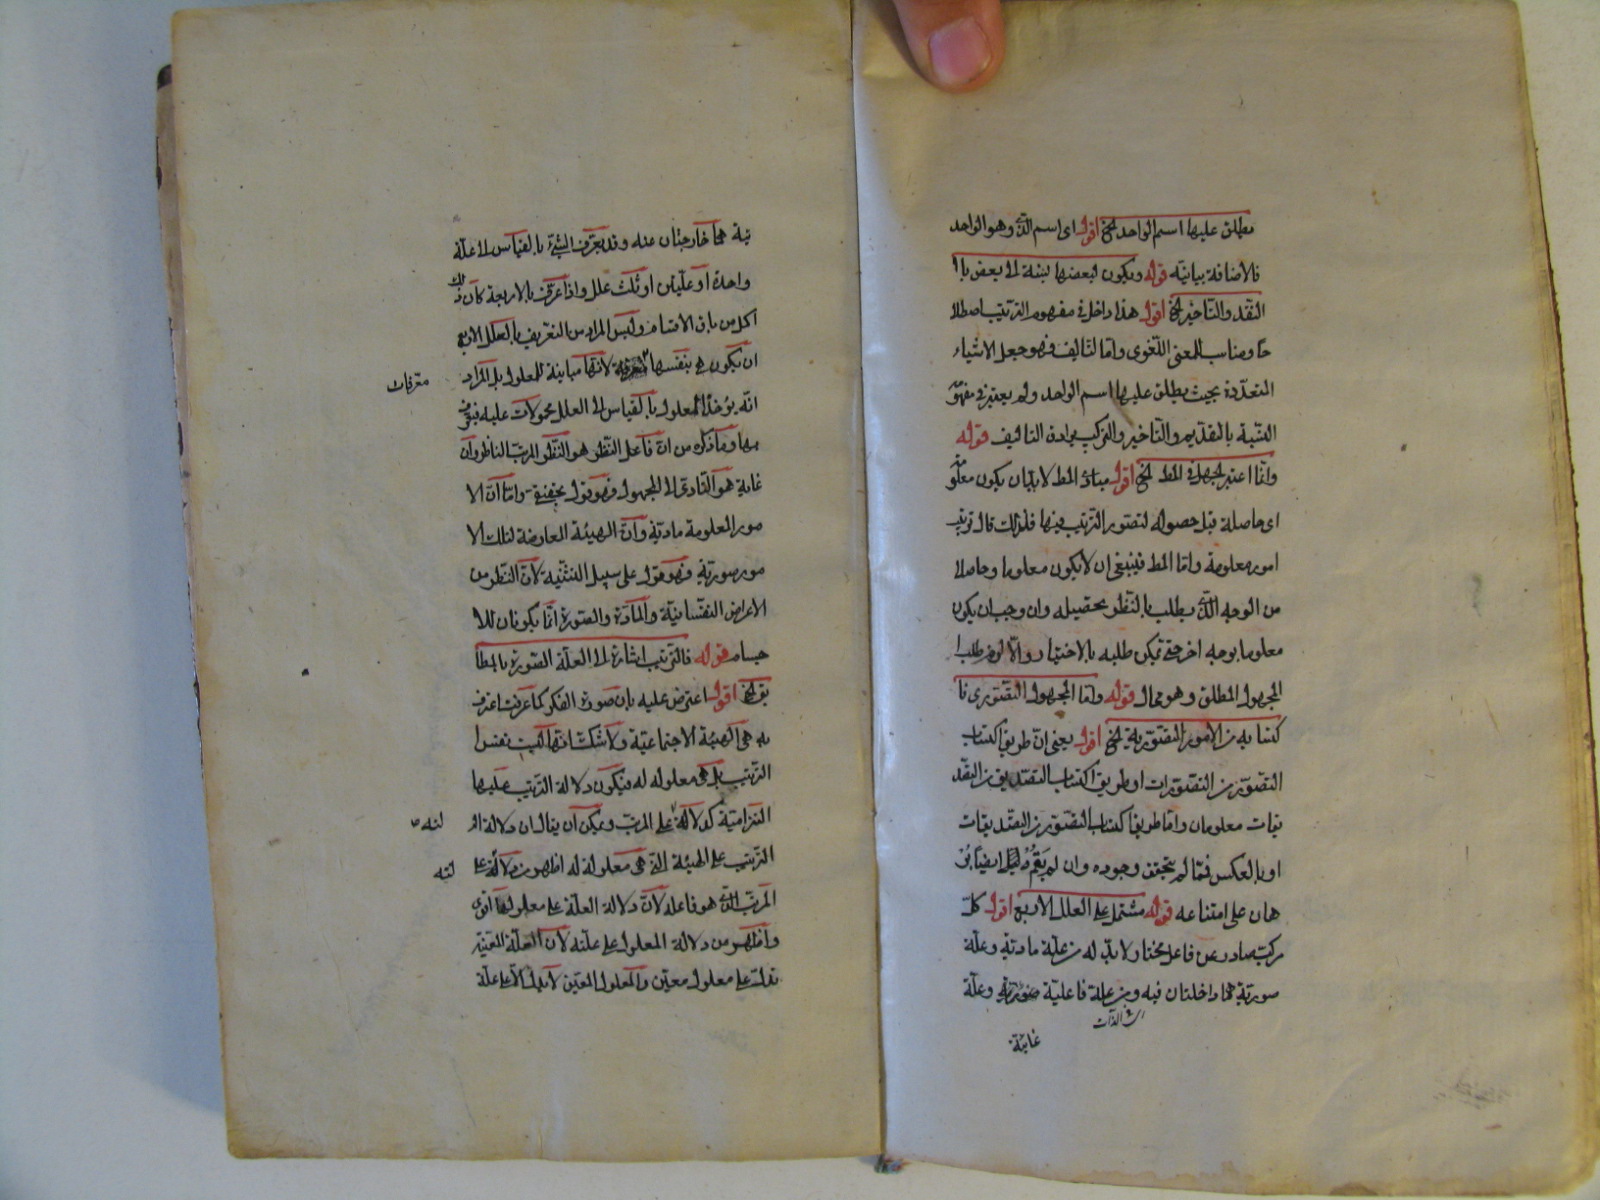 يطلق عليها اسم الواحد الخ اقول اى اسم الذى وهو الواحد
فالاضافة بيانية قوله ويكون لبعضها نسبة الى بعض بالـ
التقدم والتأخير الخ اقول هذا داخل فى مفهوم الترتيب اصطلا
حا ومناسب للمعنى اللغوى واما التاليف فهو جعل الاشياء
المتعددة بحيث يطلق عليها اسم الواحد ولم يعتبر فى مفهومه
النسبة بالتقديم والتاخير والتركيب يرادف التاليف قوله
وانما اعتبر الجهل فى المط الخ اقول مبادى المط لابد ان يكون معلومة
اى حاصلة قبل حصوله لتصور الترتيب فيها فلذلك قال ترتيب
امور معلومة واما المط فينبغى ان لا يكون معلوما وحاصلا
من الوجه الذى يطلب بالنظر تحصيله وان وجب ان يكون
معلوما بوجه اخر حتى يمكن طلبه بالاختيار والا لزم طلب ا
لمجهول المطلق وهو محال قوله واما المجهول التصورى فا
كتسابه من الامور التصورية الخ اقول يعنى ان طريق اكتساب
التصور من التصورات او طريق اكتساب التصديق من التصد
يقات معلومان واما طريق اكتساب التصور من التصديقات
او بالعكس فمما لم يتحقق وجوده وان لم يقم دليل ايضا بر
هان على امتناعه قوله مشتمل على العلل الاربع اقول كل
مركب صادر عن فاعل مختار لابد له من علة مادية وعلة
صورية هما داخلتان فيه ومن علة فاعلية صورية وعلة
غائية
ئية هما خارجتان عنه وقد يعرف الشئ بالقياس الى علة
واحدة او علتين او ثلث علل واذا عرف بالاربعة كان ذلك
اكمل من باقى الاقسام وليس المراد من التعريف بالعلل الاربع
ان يكون هى بنفسها معرفة لانها مباينة للمعلول بل المراد
معرفات
انه يؤخذ للمعلول بالقياس الى العلل محمولات عليه فيعرف
بها وما ذكره من ان فاعل النظر هو الناظر المرتب الناظر وان
غايته هو التادى الى المجهول فهو قول تحقيق واما ان الا
مور المعلومة مادية وان الهيئة العارضة لتلك الا
مور صورية فهو قول على سبيل التشبيه لان النظر من
الاعراض النفسانية والمادة والصورة انما يكونان للا
جسام قوله فالترتيب اشارة الى العلة الصورة بالمطا
بق الخ اقول اعترض عليه بان صورة الفكر كما عرفت اعترف
به هى الهيئة الاجتماعية ولا شك انها ليست نفس ا
لترتيب بل هى معلوله له فيكون دلالة الترتيب عليها
التزامية كدلالته على المرتب ويمكن ان يقال ان دلالة ا
الترتيب على الهيئة التى هى معلولة له اظهر من دلالته على
المرتب الذى هو فاعله لان دلالة العلة على معلولها اقوى
واظهر من دلالة المعلول على علته لان العلة المعينة
تدل على معلول معين والمعلول المعين لا يدل الا على علة